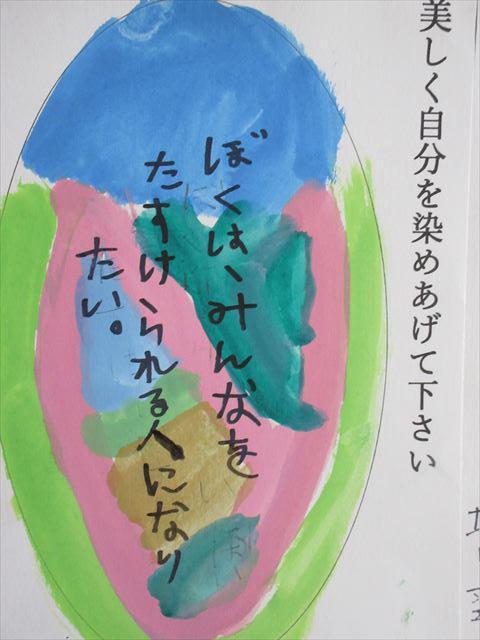 美しく自分を染めあげて下さい
ぼくは、みんなを
たすけられる人になり
たい。